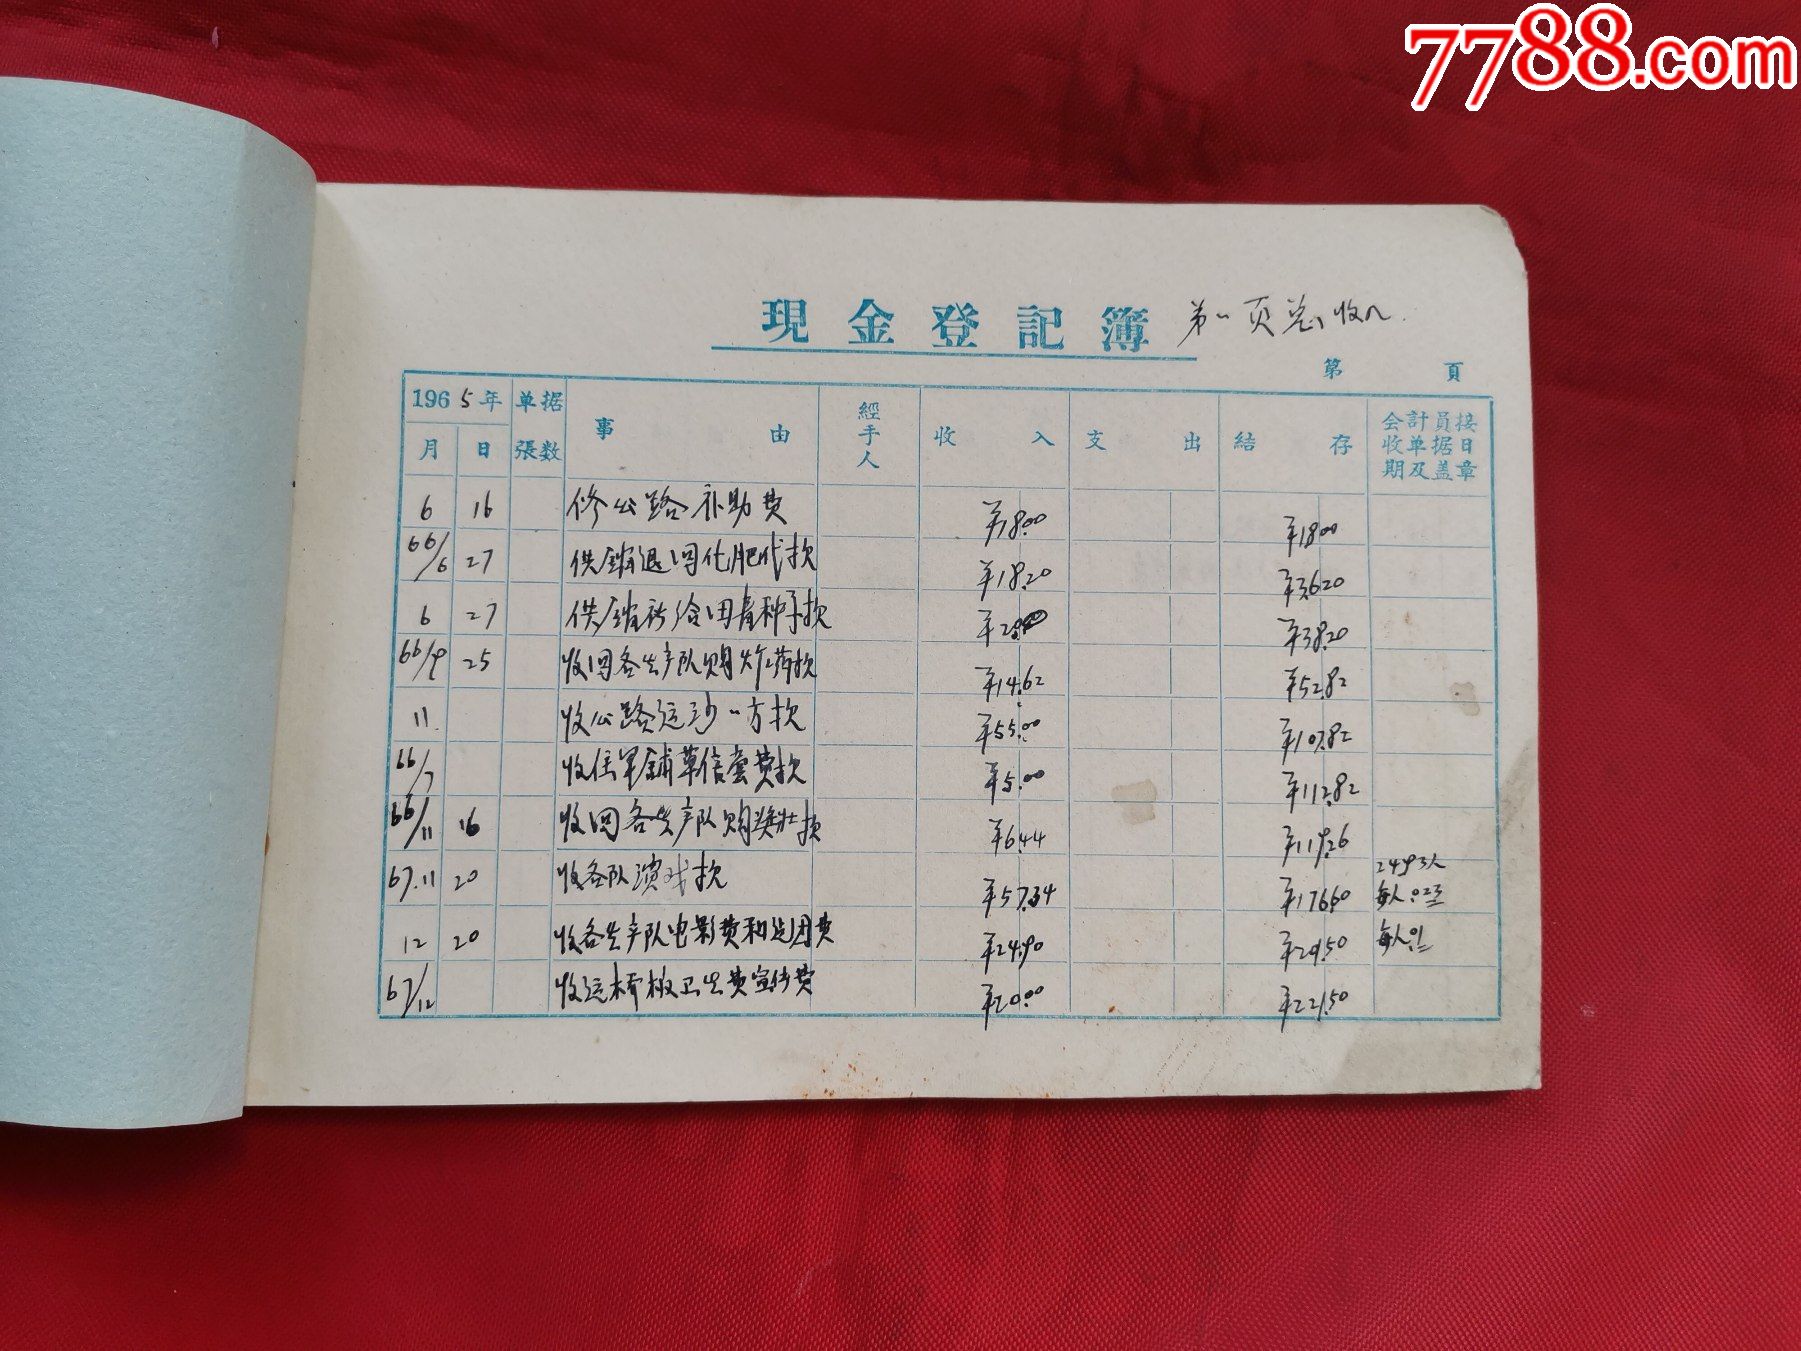 7788.com
現金登記簿 第一页总收入
第 頁
1965年 单据張数 事由 經手人 收入 支出 結存 会計員接收单据日期及盖章
月 日
6 16 修公路补助费 ¥18.00 ¥18.00
66/6 27 供销退回化肥代款 ¥18.20 ¥36.20
6 27 供销社给回青种子款 ¥2.00 ¥38.20
66/9 25 收回各生产队购炸药款 ¥14.62 ¥52.82
11 收公路运沙一方款 ¥55.00 ¥107.82
66/7 收住军铺草信壹费款 ¥5.00 ¥112.82
66/11 16 收回各生产队购奖状款 ¥6.44 ¥119.26
67.11 20 收各队演戏款 ¥57.34 ¥176.60 2493人 每人.023
12 20 收各生产队电影费和 费 ¥24.90 ¥201.50 每人.01
67/12 收运桥板卫生费宣传费 ¥20.00 ¥221.50